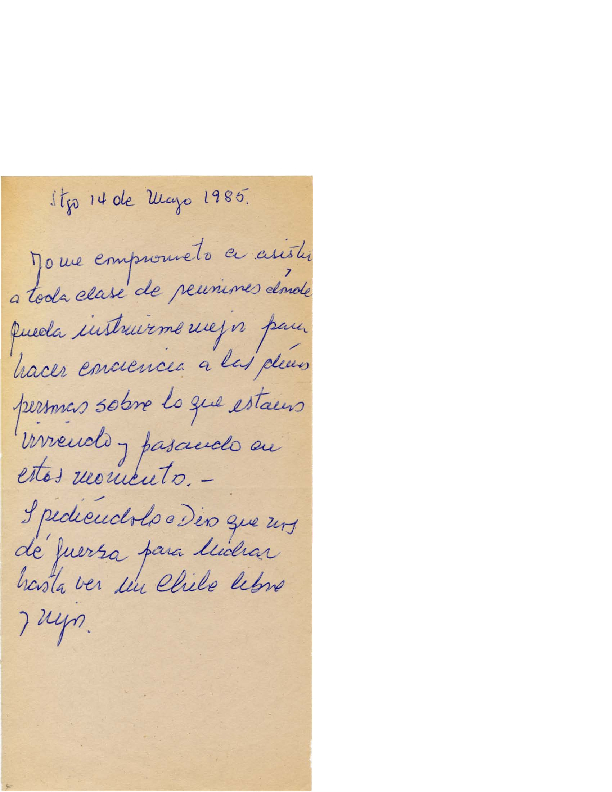 Stgo 14 de Mayo 1985.
Yo me comprometo a asistir
a toda clase de reuniones dónde
pueda instruirme mejor para
hacer conciencia a las demás
personas sobre lo que estamos
viviendo y pasando en
estos momento. –
Y pidiéndolo a Dios que nos
dé fuerza para luchar
hasta ver un Chile libre
y mejor.